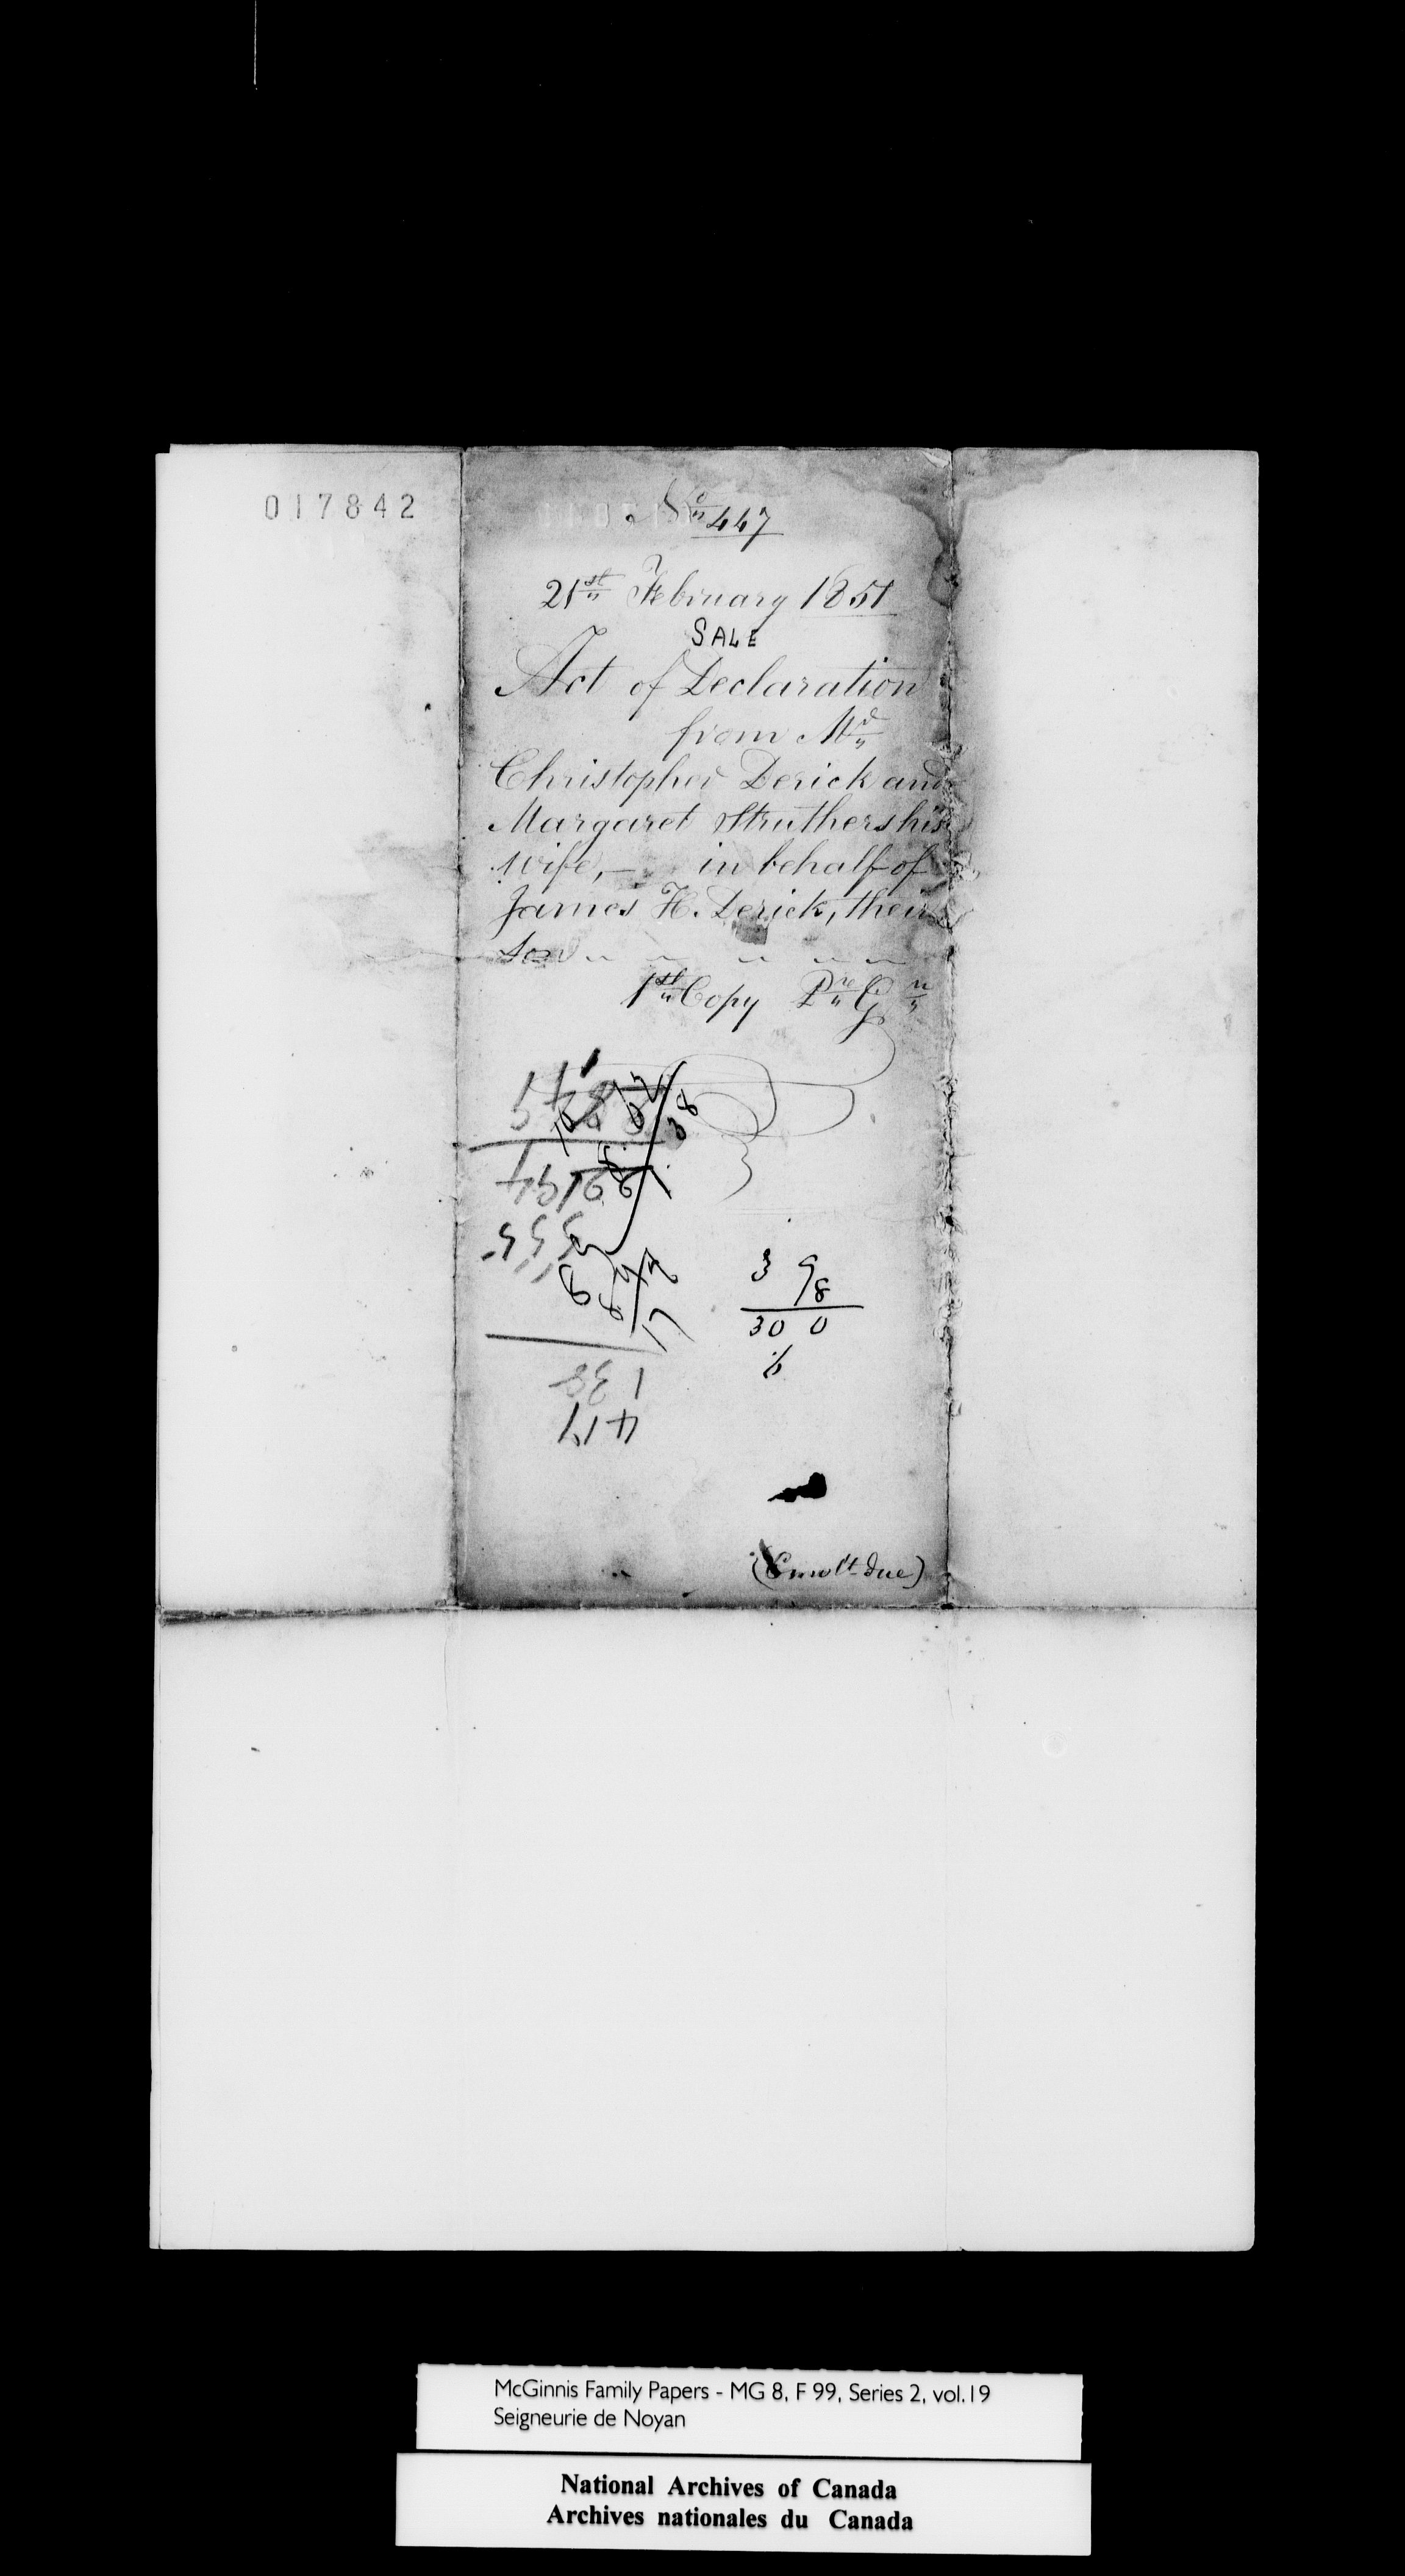 017842
No 447
21st February 1851
SALE
Act of Declaration
from Mr
Christopher Derick and
Margaret Struthers his
wife, — in behalf of
James H. Derick, their
son
1st Copy
3 98
30 0
138
417
McGinnis Family Papers - MG 8, F 99, Series 2, vol.19
Seigneurie de Noyan
National Archives of Canada
Archives nationales du Canada